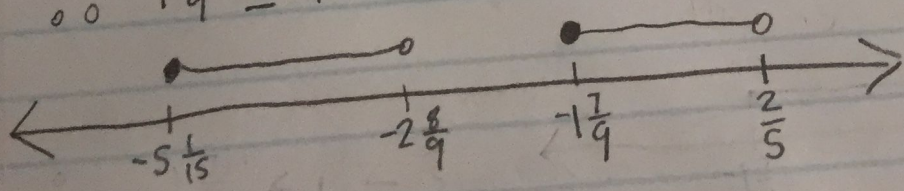 -5 1/15 -2 8/9 -1 7/9 2/5